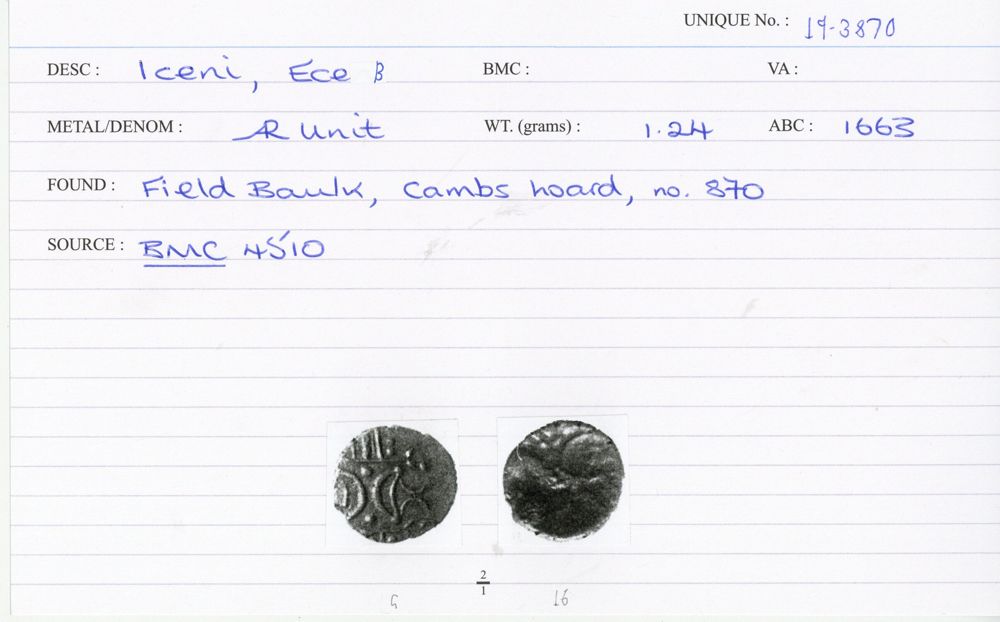 UNIQUE No. : 19-3870
DESC : Iceni, Ece B BMC : VA :
METAL/DENOM : AR Unit WT. (grams) : 1.24 ABC : 1663
FOUND : Field Baulk, Cambs hoard, no. 870
SOURCE : BMC 4510
2
1
16